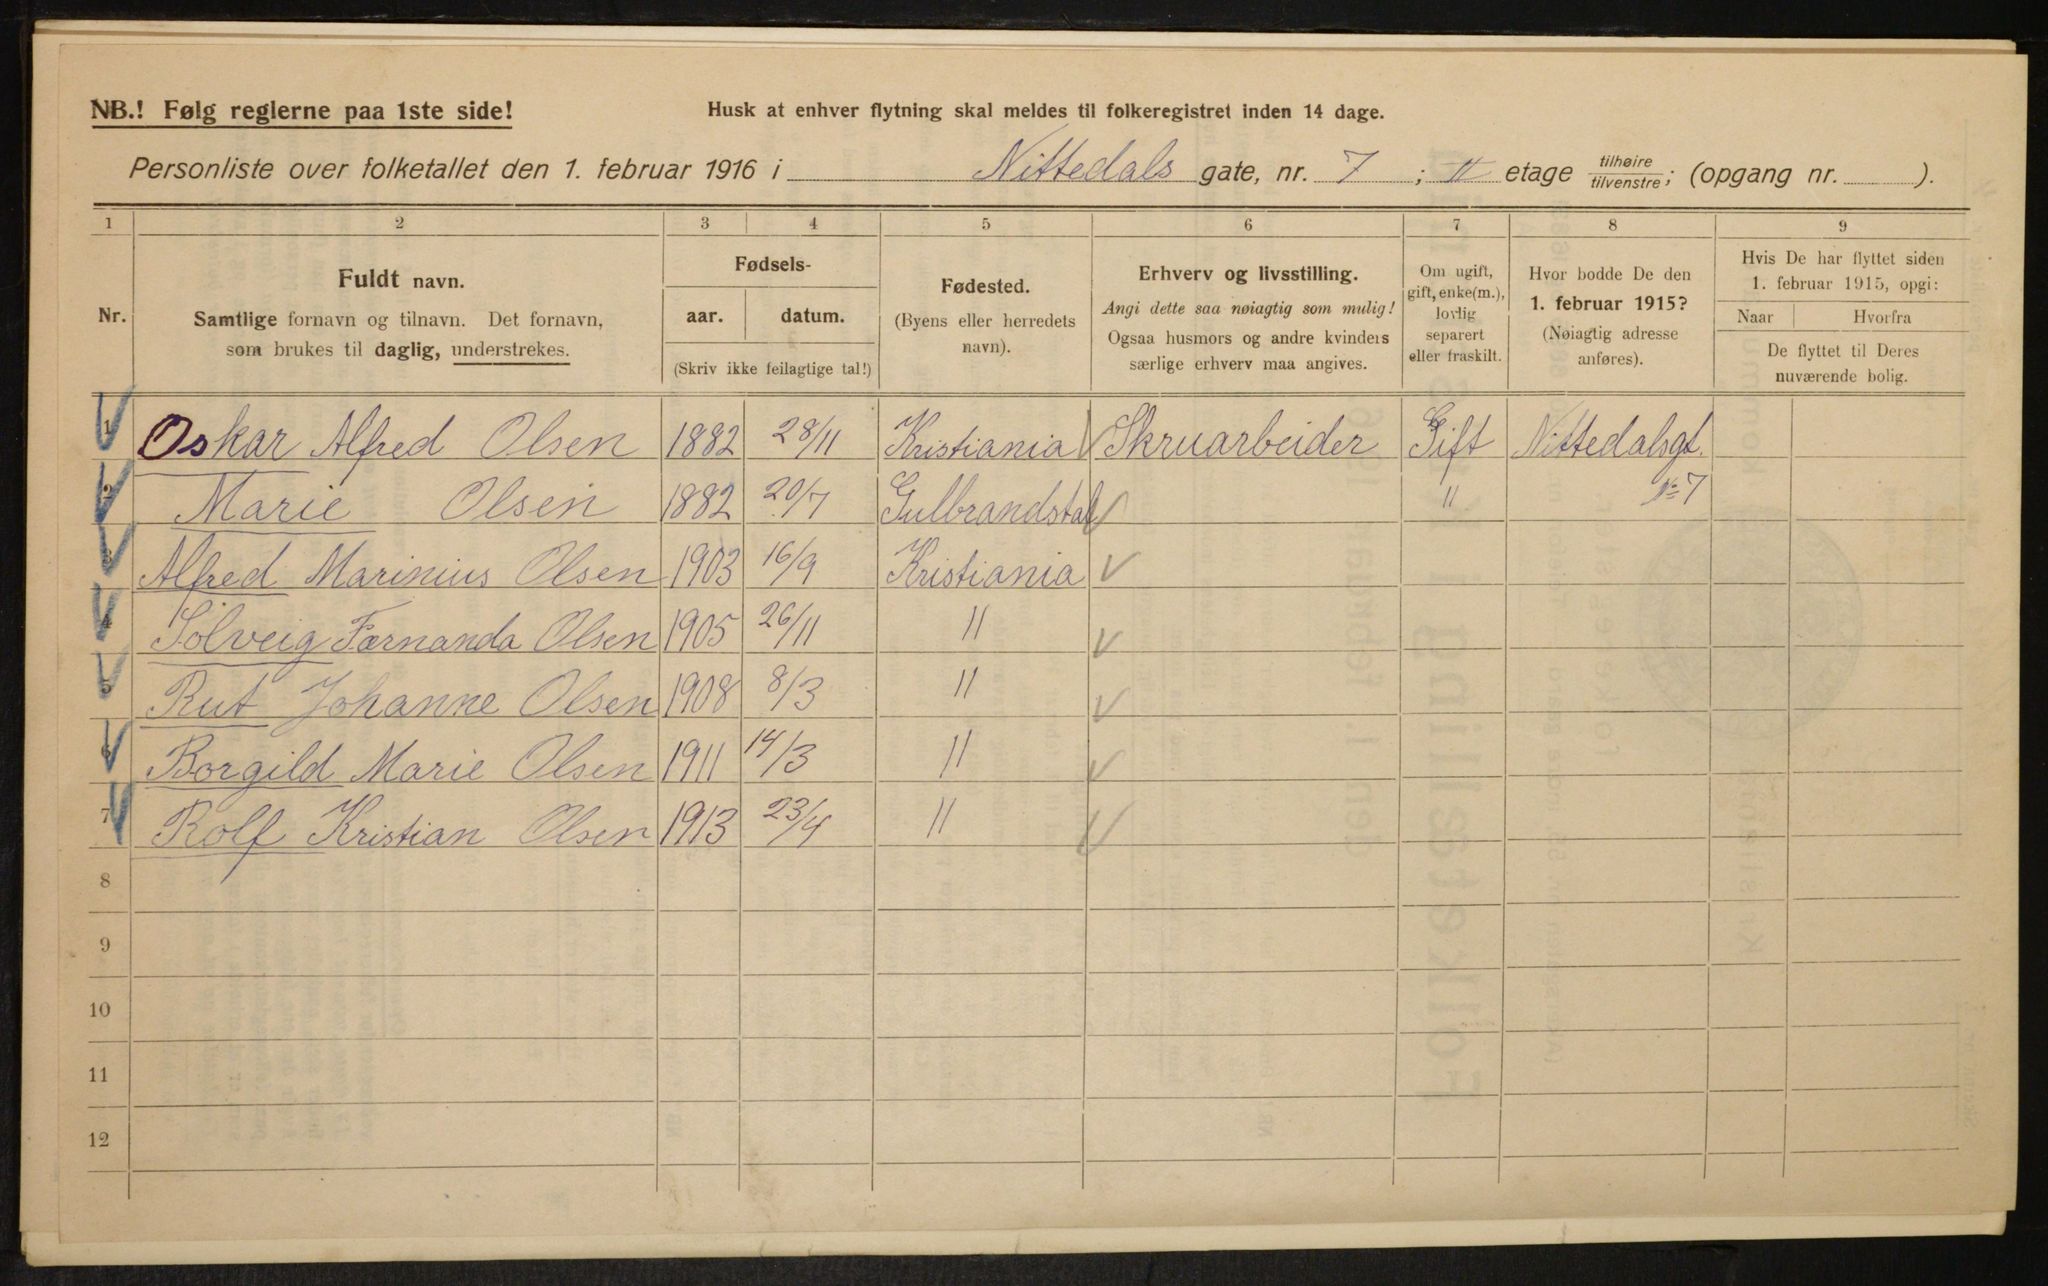 NB.! Følg reglerne paa 1ste side! Husk at enhver flytning skal meldes til folkeregistret inden 14 dage.
Personliste over folketallet den 1. februar 1916 i Nittedals gate, nr. 7 ; II etage tilhøire/tilvenstre; (opgang nr. ).
1 2 3 4 5 6 7 8 9
Nr.
Fuldt navn.
Samtlige fornavn og tilnavn. Det fornavn,
som brukes til daglig, understrekes.
Fødsels-
aar. datum.
(Skriv ikke feilagtige tal!)
Fødested.
(Byens eller herredets
navn).
Erhverv og livsstilling.
Angi dette saa nøiagtig som mulig!
Ogsaa husmors og andre kvinders
særlige erhverv maa angives.
Om ugift,
gift, enke(m.),
lovlig
separert
eller fraskilt.
Hvor bodde De den
1. februar 1915?
(Nøiagtig adresse
anføres).
Hvis De har flyttet siden
1. februar 1915, opgi:
Naar Hvorfra
De flyttet til Deres
nuværende bolig.
1 Oskar Alfred Olsen 1882 28/11 Kristiania Skruarbeider Gift Nittedalsgt.
2 Marie Olsen 1882 20/7 Gulbrandstal " No 7
3 Alfred Marinius Olsen 1903 16/9 Kristiania
4 Solveig Færnanda Olsen 1905 26/11 "
5 Rut Johanne Olsen 1908 8/3 "
6 Borgild Marie Olsen 1911 14/3 "
7 Rolf Kristian Olsen 1913 23/4 "
8
9
10
11
12